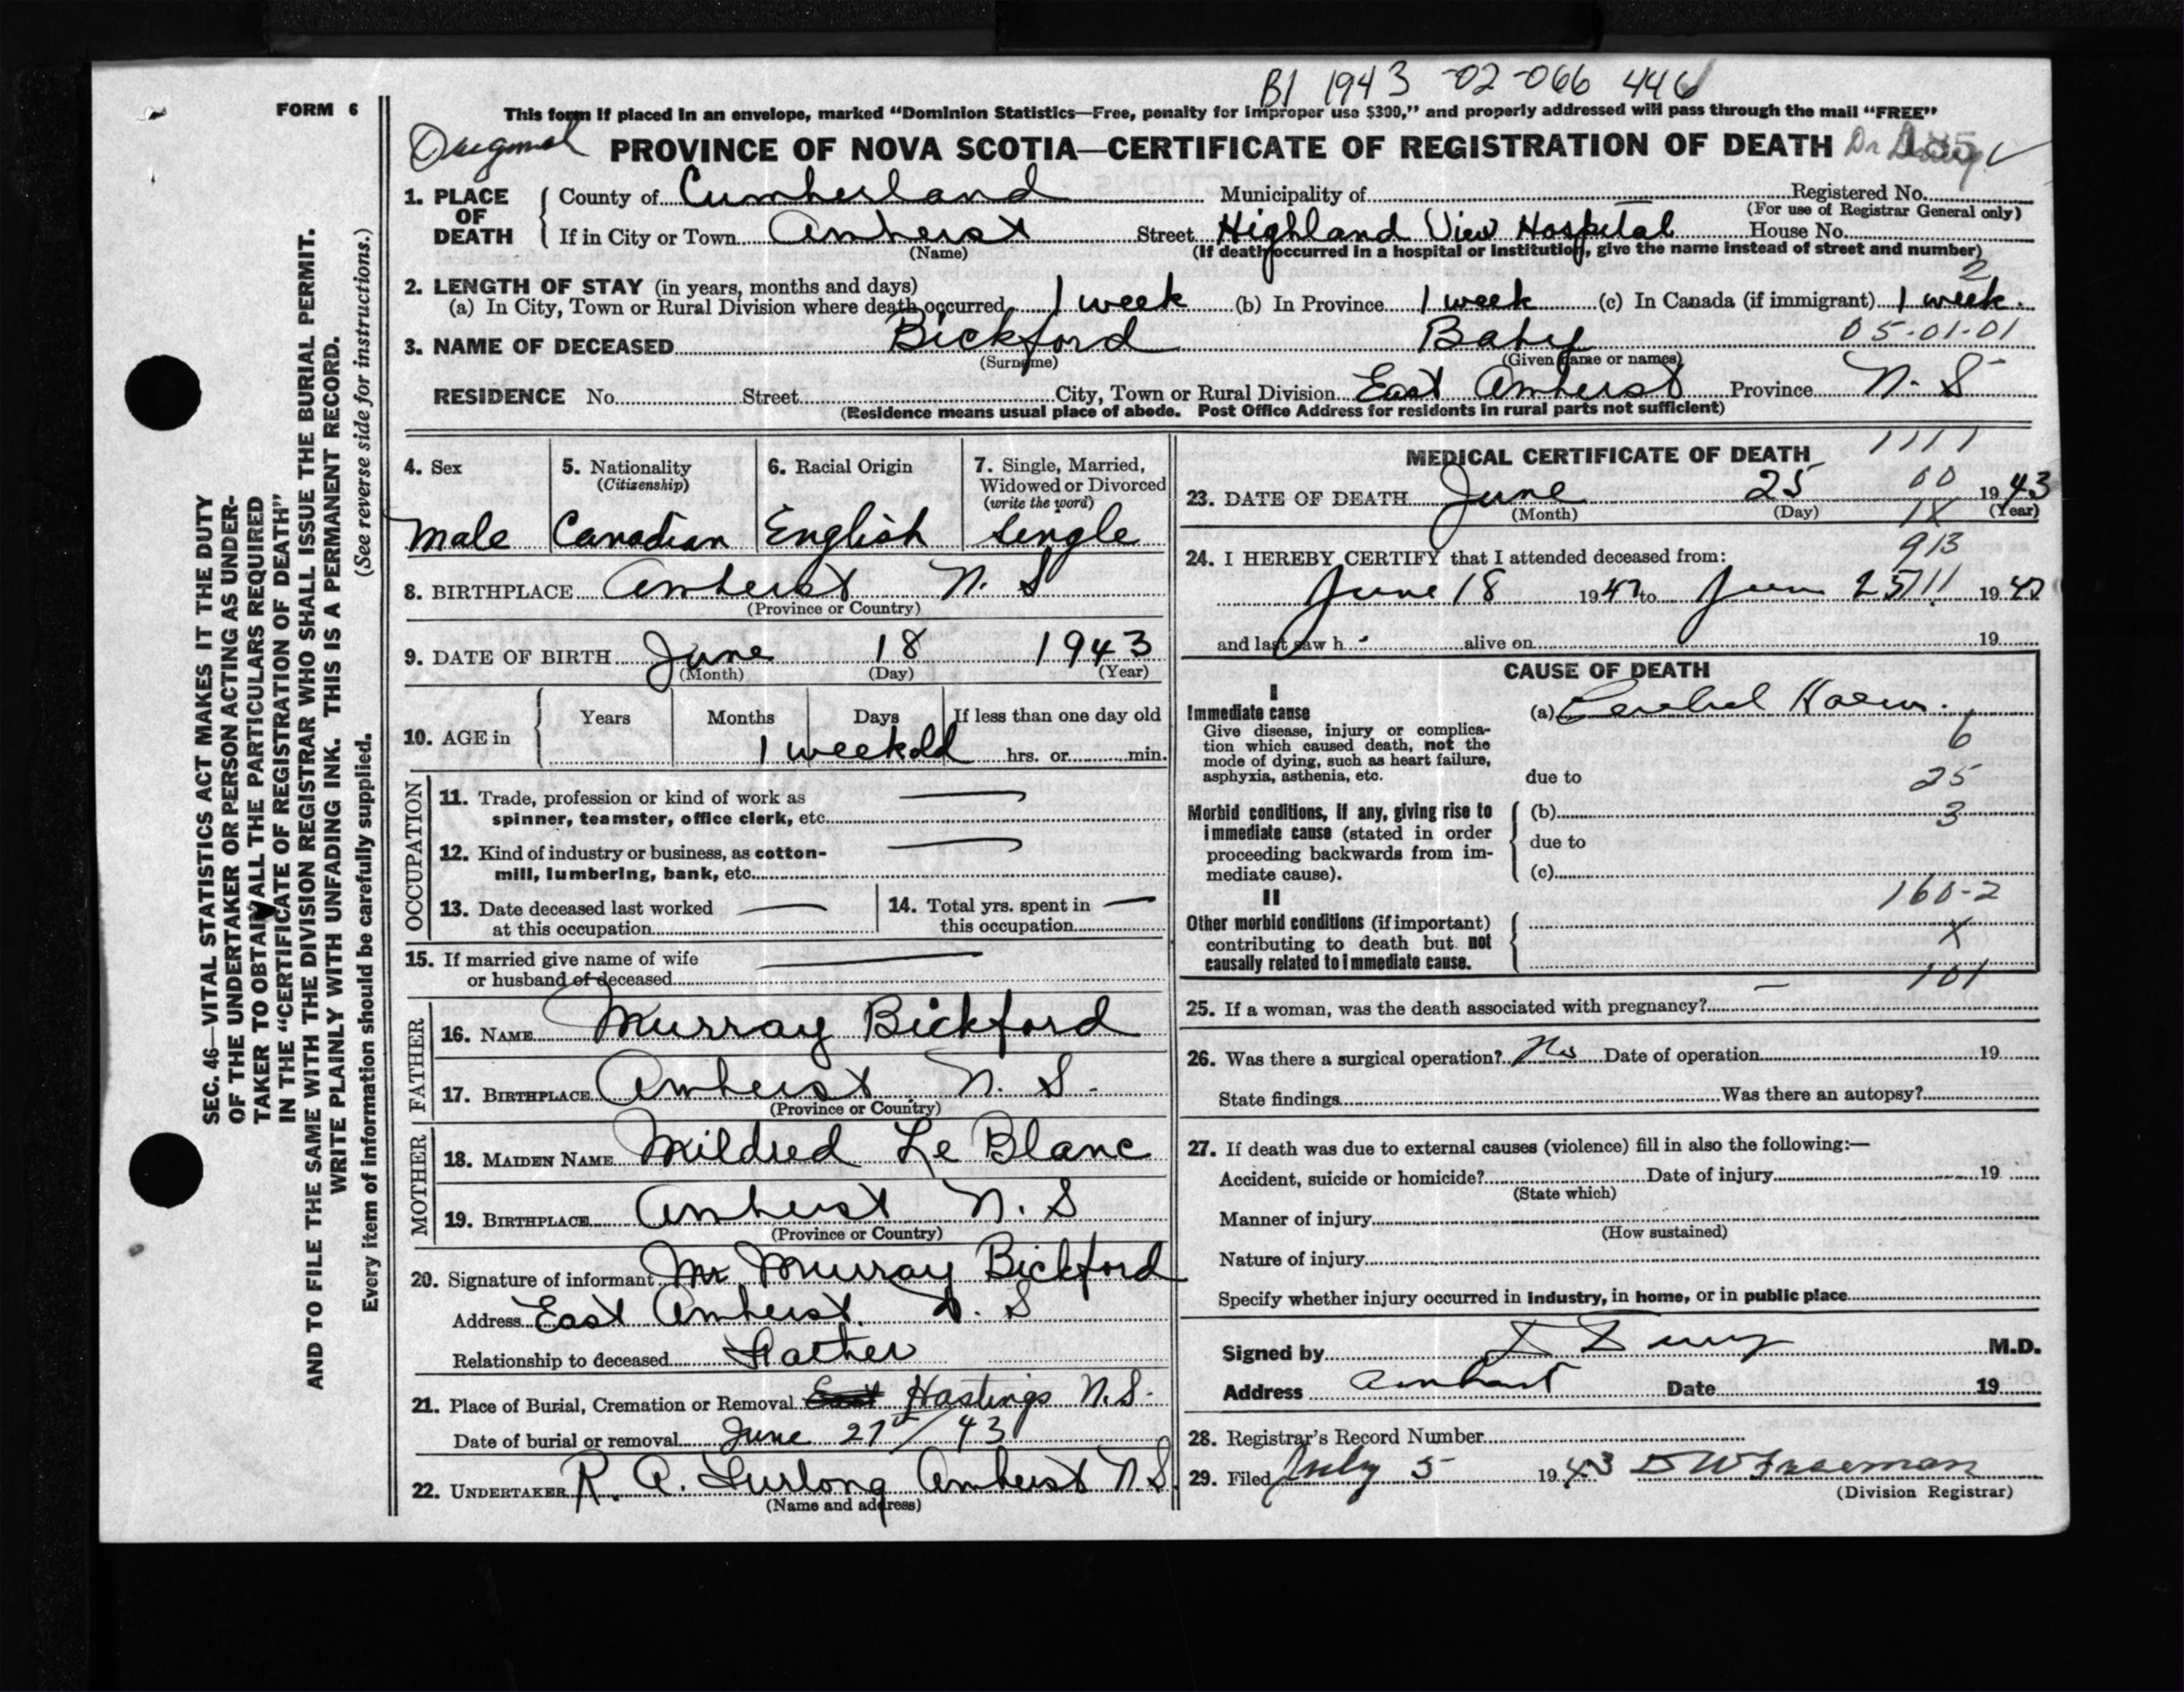 B1 1943 -02-066 446
FORM 6
This form if placed in an envelope, marked “Dominion Statistics—Free, penalty for improper use $300,” and properly addressed will pass through the mail “FREE”
PROVINCE OF NOVA SCOTIA—CERTIFICATE OF REGISTRATION OF DEATH
1. PLACE OF DEATH
County of Cumberland Municipality of Registered No.
(For use of Registrar General only)
If in City or Town Amherst Street Highland View Hospital House No.
(Name) (If death occurred in a hospital or institution, give the name instead of street and number)
2. LENGTH OF STAY (in years, months and days) 2
(a) In City, Town or Rural Division where death occurred 1 week (b) In Province 1 week (c) In Canada (if immigrant) 1 week.
3. NAME OF DECEASED Bickford Baby 05-01-01
(Surname) (Given name or names)
RESIDENCE No. Street City, Town or Rural Division East Amherst Province N. S
(Residence means usual place of abode. Post Office Address for residents in rural parts not sufficient)
4. Sex
Male
5. Nationality
(Citizenship)
Canadian
6. Racial Origin
English
7. Single, Married,
Widowed or Divorced
(write the word)
Single
8. BIRTHPLACE Amherst N. S
(Province or Country)
9. DATE OF BIRTH June 18 1943
(Month) (Day) (Year)
10. AGE in Years Months Days If less than one day old
1 week old hrs. or min.
OCCUPATION
11. Trade, profession or kind of work as
spinner, teamster, office clerk, etc.
12. Kind of industry or business, as cotton-
mill, lumbering, bank, etc.
13. Date deceased last worked
at this occupation
14. Total yrs. spent in
this occupation
15. If married give name of wife
or husband of deceased
FATHER
16. NAME Murray Bickford
17. BIRTHPLACE Amherst N. S.
(Province or Country)
MOTHER
18. MAIDEN NAME Mildred Le Blanc
19. BIRTHPLACE Amherst N. S
(Province or Country)
20. Signature of informant Mr Murray Bickford
Address East Amherst. N. S
Relationship to deceased Father
21. Place of Burial, Cremation or Removal East Hastings N.S.
Date of burial or removal June 27th/43
22. UNDERTAKER R. A. Furlong Amherst N.S.
(Name and address)
MEDICAL CERTIFICATE OF DEATH 1111
23. DATE OF DEATH June 25 00 1943
(Month) (Day) 1X (Year)
913
24. I HEREBY CERTIFY that I attended deceased from:
June 18 19 to June 25 19
and last saw h alive on 19
CAUSE OF DEATH
I
Immediate cause
Give disease, injury or complica-
tion which caused death, not the
mode of dying, such as heart failure,
asphyxia, asthenia, etc.
(a) Cerebral Haem.
6
due to 25
Morbid conditions, if any, giving rise to
immediate cause (stated in order
proceeding backwards from im-
mediate cause).
(b) 3
due to
(c)
160-2
II
Other morbid conditions (if important)
contributing to death but not
causally related to immediate cause.
X
101
25. If a woman, was the death associated with pregnancy?
26. Was there a surgical operation? No Date of operation 19
State findings Was there an autopsy?
27. If death was due to external causes (violence) fill in also the following:—
Accident, suicide or homicide? Date of injury 19
(State which)
Manner of injury
(How sustained)
Nature of injury
Specify whether injury occurred in industry, in home, or in public place
Signed by M.D.
Address Amherst Date 19
28. Registrar's Record Number
29. Filed July 5 1943 D W Freeman
(Division Registrar)
SEC. 46—VITAL STATISTICS ACT MAKES IT THE DUTY
OF THE UNDERTAKER OR PERSON ACTING AS UNDER-
TAKER TO OBTAIN ALL THE PARTICULARS REQUIRED
IN THE “CERTIFICATE OF REGISTRATION OF DEATH”
AND TO FILE THE SAME WITH THE DIVISION REGISTRAR WHO SHALL ISSUE THE BURIAL PERMIT.
WRITE PLAINLY WITH UNFADING INK. THIS IS A PERMANENT RECORD.
Every item of information should be carefully supplied. (See reverse side for instructions.)